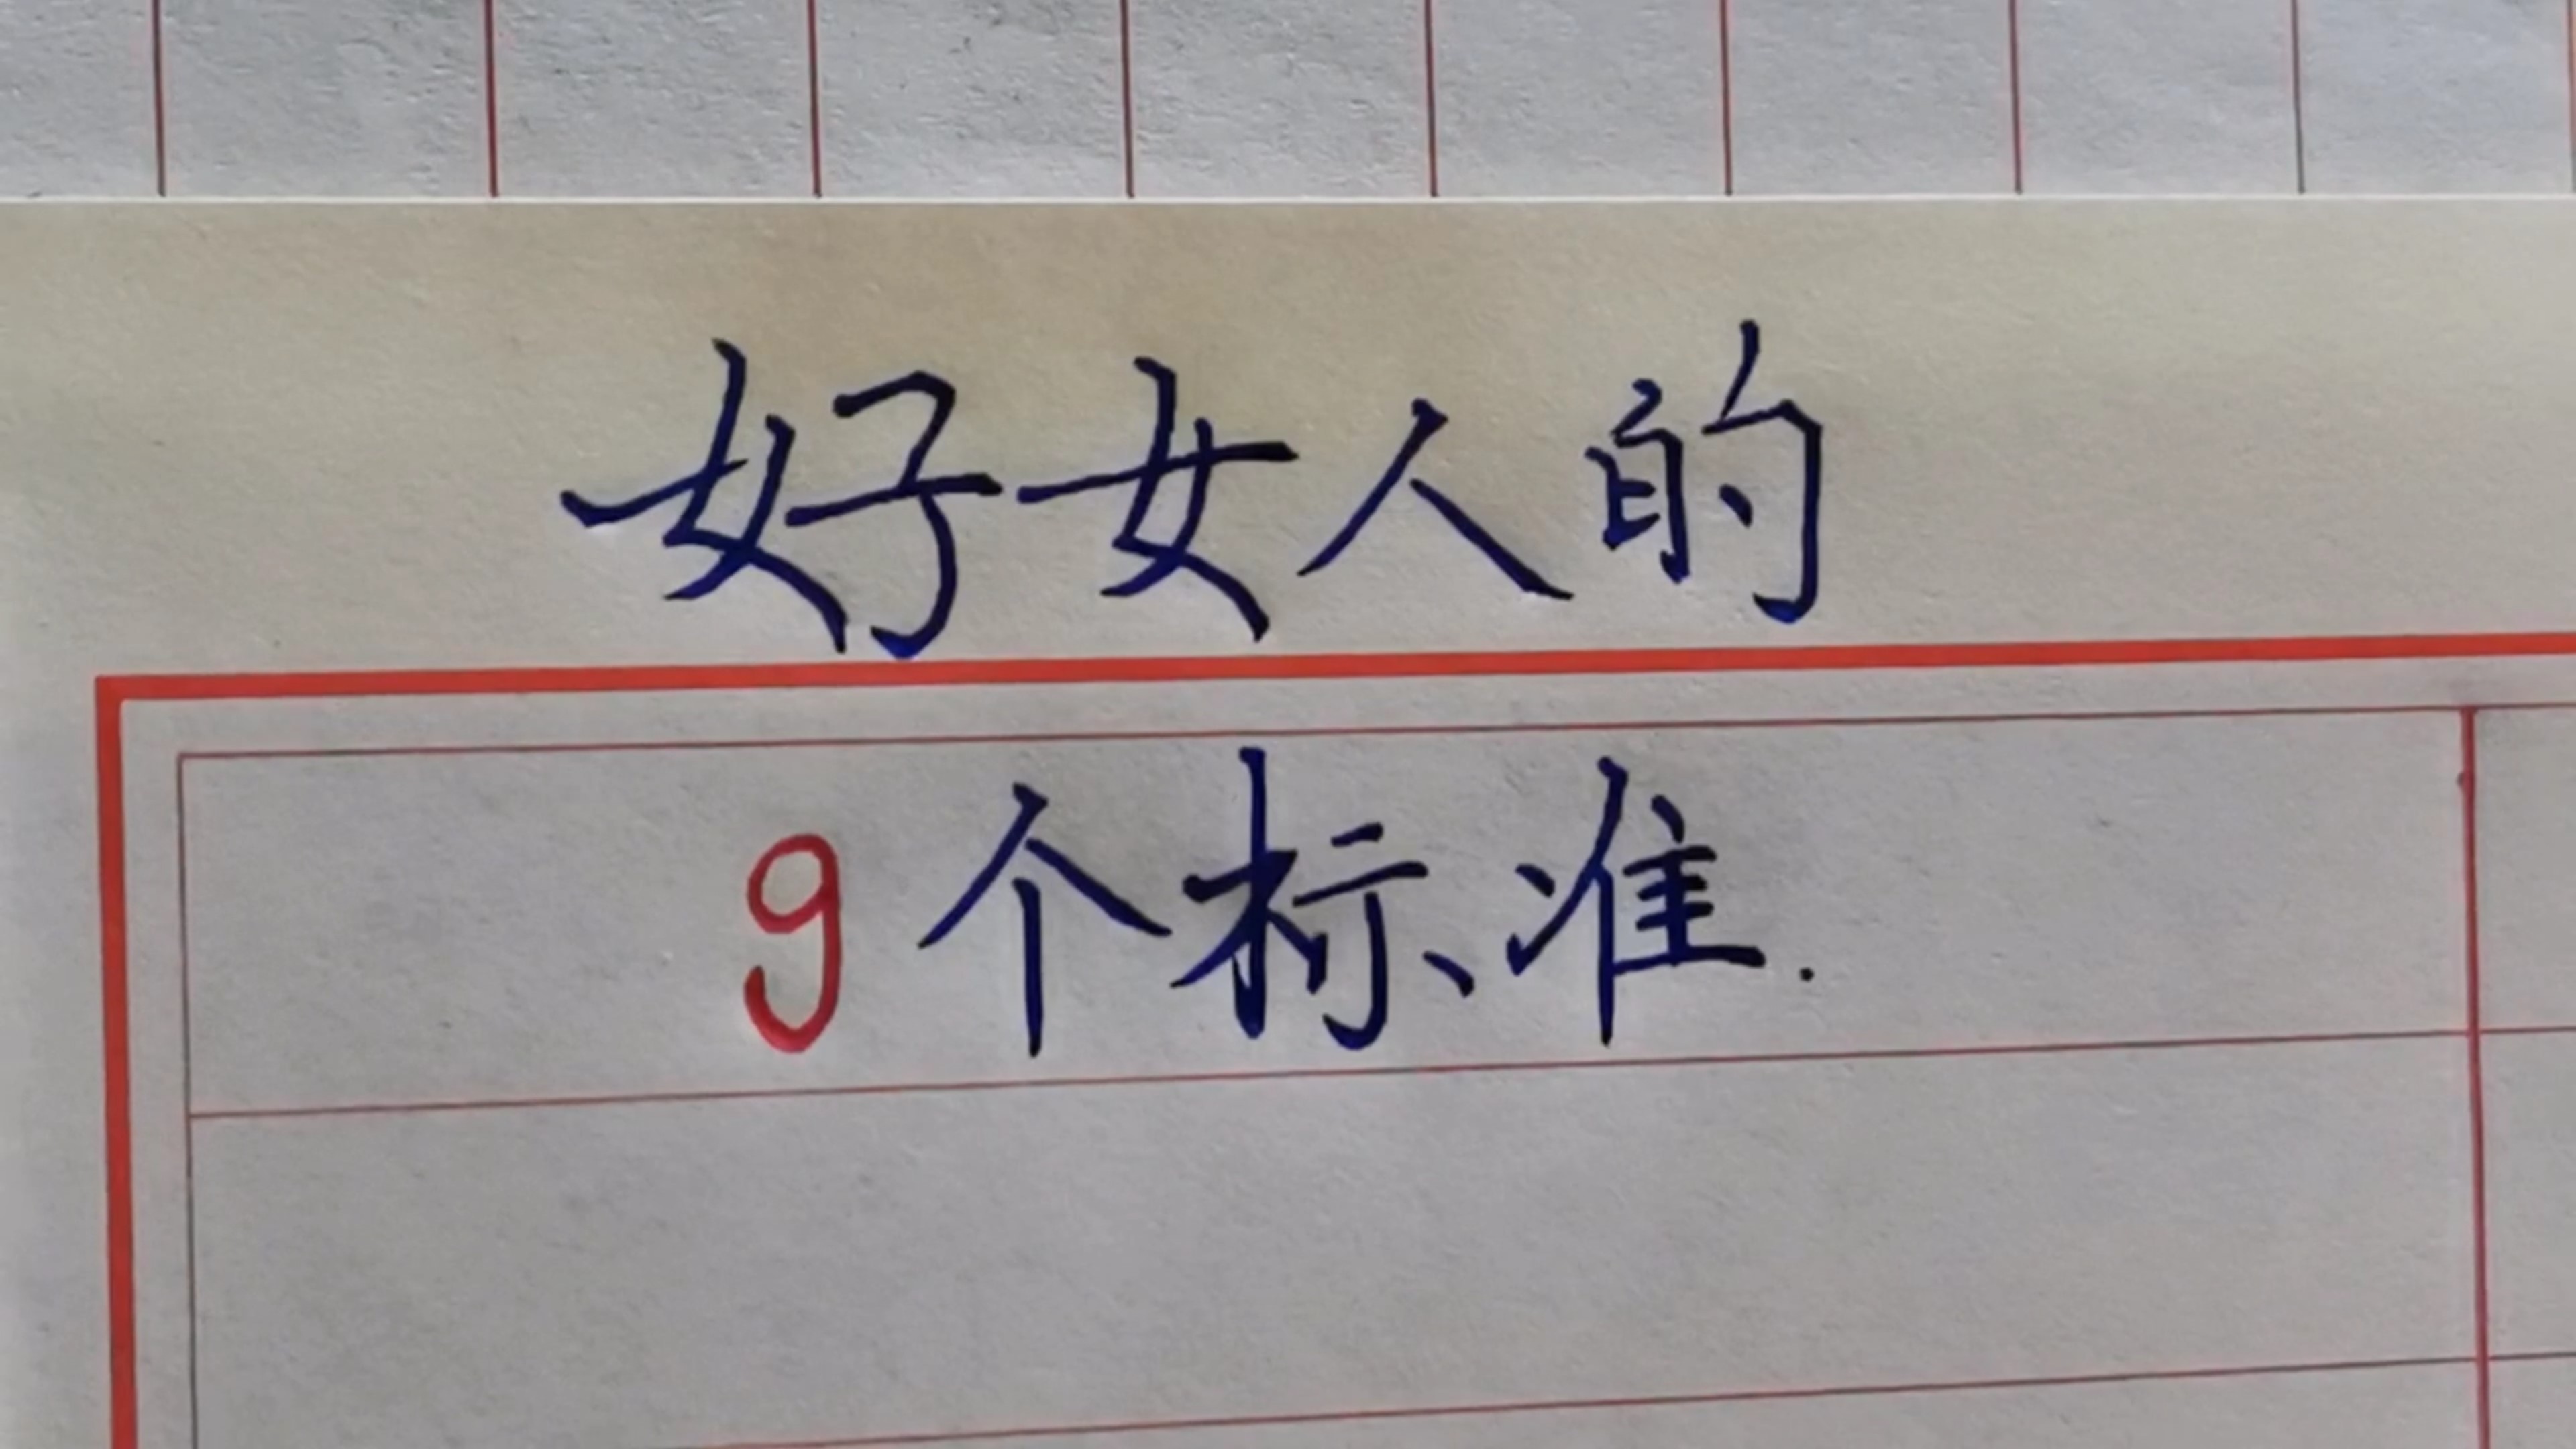 好女人的
9个标准.